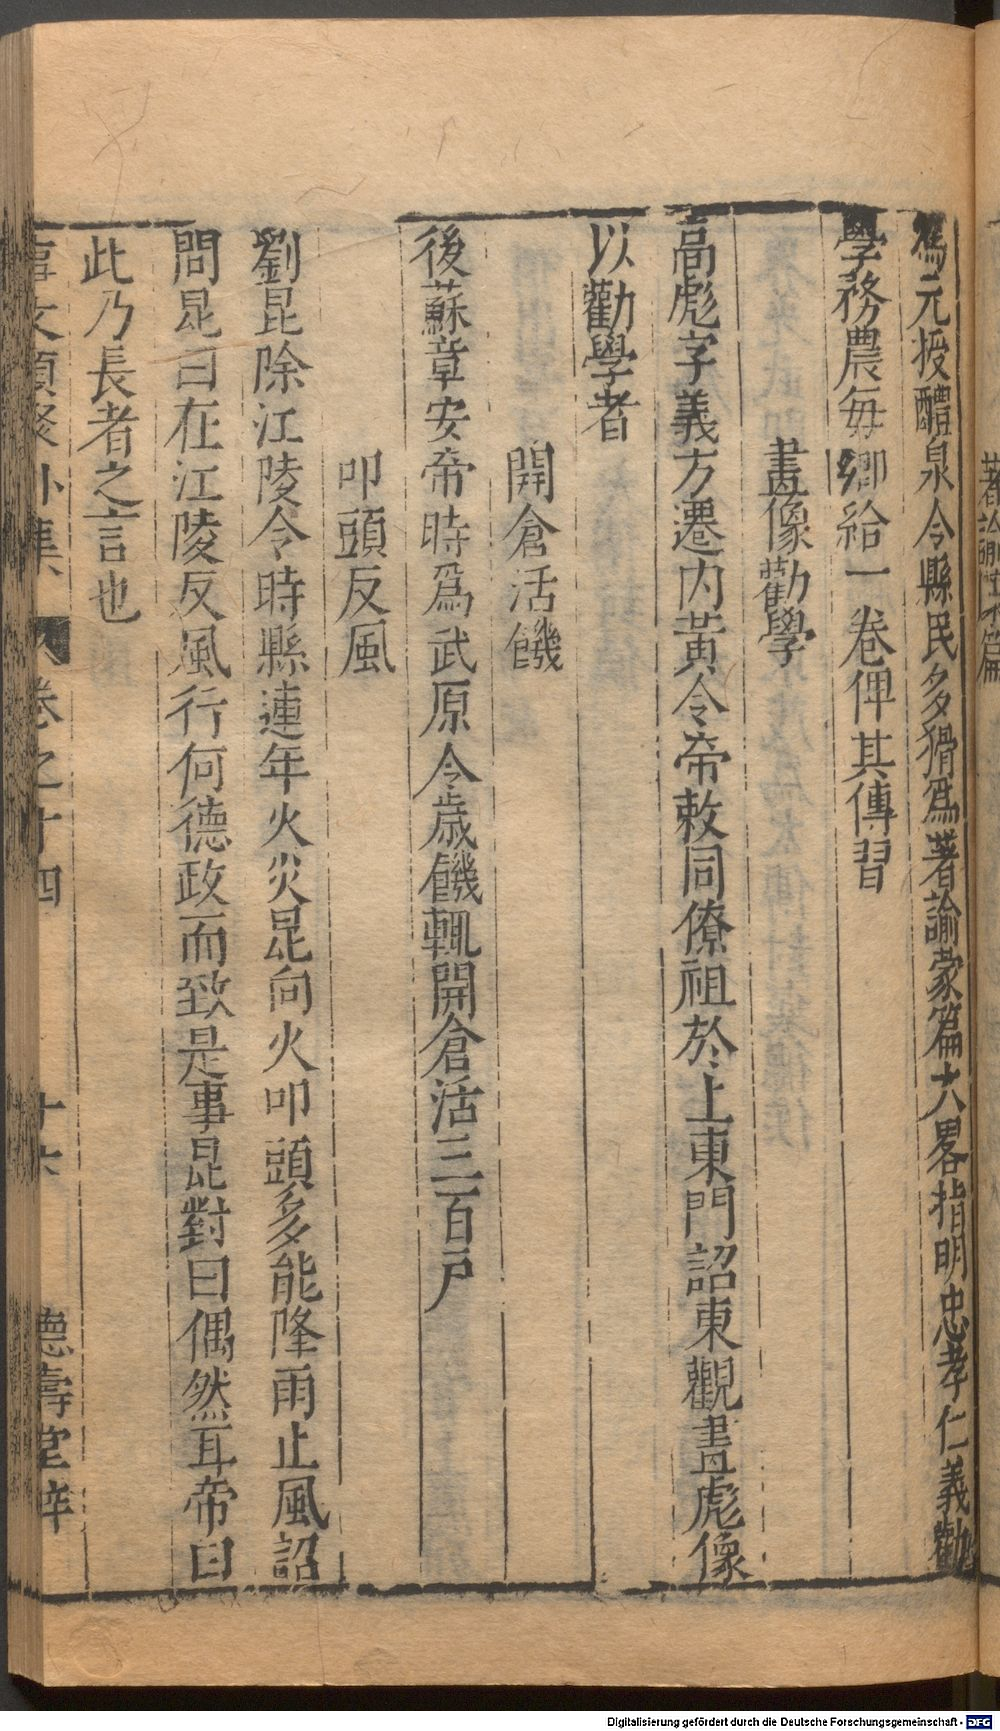 著諭蒙篇
馮元授醴泉令縣民多猾爲著諭蒙篇大畧指明忠孝仁義勸
學務農每鄉給一卷俾其傳習
畫像勸學
高彪字義方遷內黃令帝敕同僚祖於上東門詔東觀畫彪像
以勸學者
開倉活饑
後蘇章安帝時爲武原令歳饑輒開倉活三百戶
叩頭反風
劉昆除江陵令時縣連年火災昆向火叩頭多能降雨止風詔
問昆曰在江陵反風行何德政而致是事昆對曰偶然耳帝曰
此乃長者之言也
事文類聚外集 卷之十四 十六 德壽堂梓
Digitalisierung gefördert durch die Deutsche Forschungsgemeinschaft - DFG